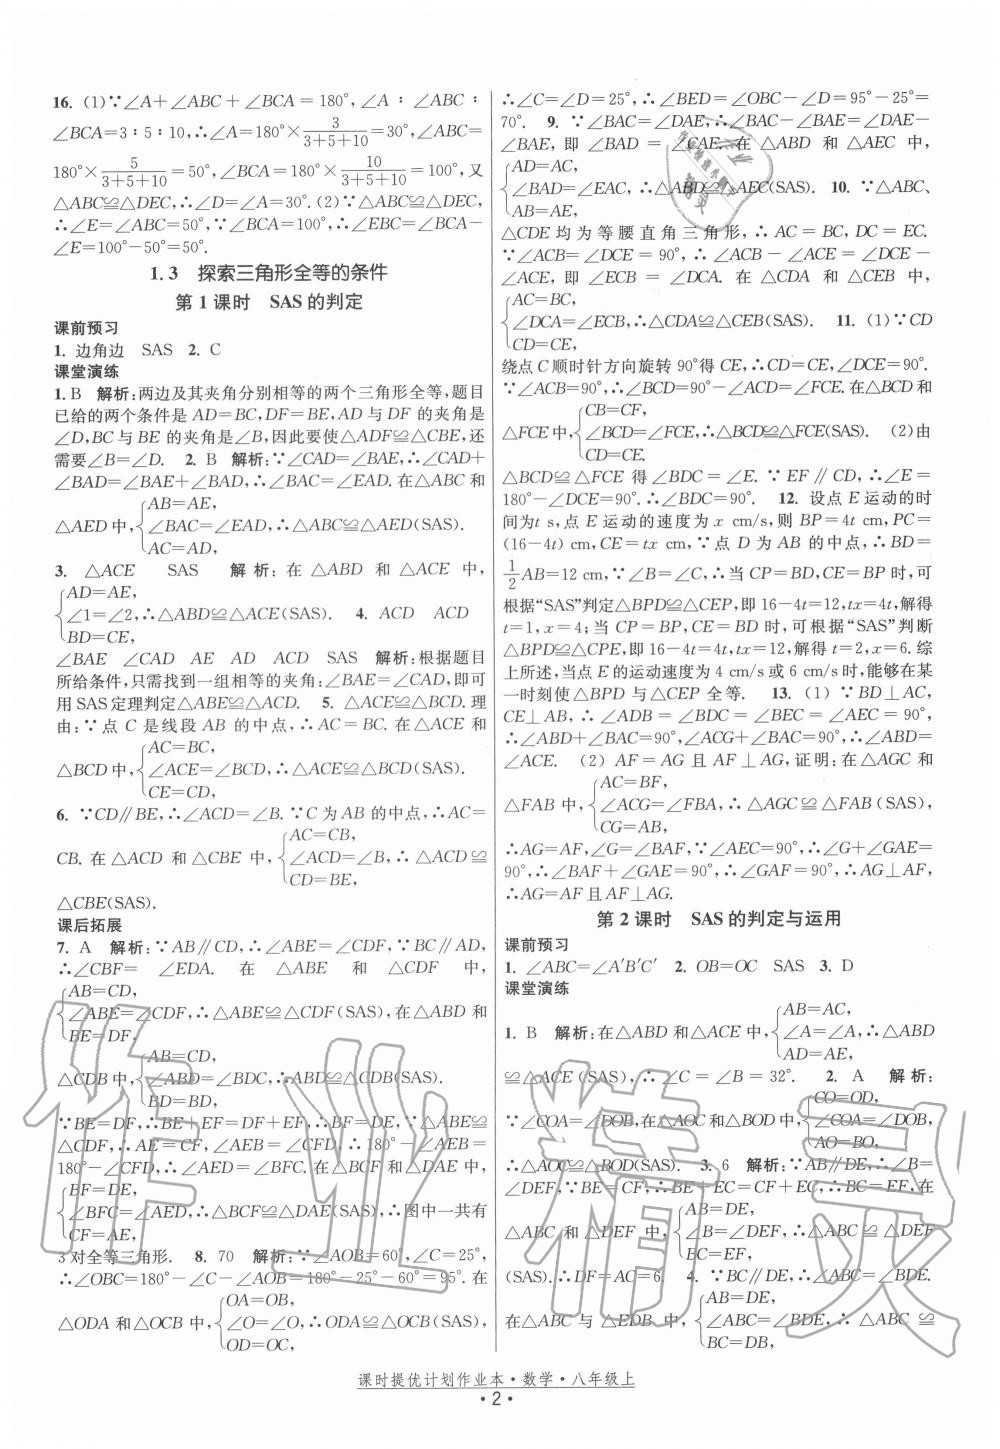 16. (1)∵∠A+∠ABC+∠BCA=180°,∠A∶∠ABC∶
∠BCA=3∶5∶10,∴∠A=180°×3/(3+5+10)=30°,∠ABC=
180°×5/(3+5+10)=50°,∠BCA=180°×10/(3+5+10)=100°,又
△ABC≌△DEC,∴∠D=∠A=30°.(2)∵△ABC≌△DEC,
∴∠E=∠ABC=50°.∵∠BCA=100°,∴∠EBC=∠BCA-
∠E=100°-50°=50°.
1.3 探索三角形全等的条件
第1课时 SAS的判定
课前预习
1. 边角边 SAS 2. C
课堂演练
1. B 解析:两边及其夹角分别相等的两个三角形全等,题目
已给的两个条件是 AD=BC,DF=BE,AD 与 DF 的夹角是
∠D,BC与 BE 的夹角是∠B,因此要使△ADF≌△CBE,还
需要∠B=∠D. 2. B 解析:∵∠CAD=∠BAE,∴∠CAD+
∠BAD=∠BAE+∠BAD,∴∠BAC=∠EAD.在△ABC和
AB=AE,
△AED 中,{∠BAC=∠EAD,∴△ABC≌△AED(SAS).
AC=AD,
3. △ACE SAS 解析:在△ABD 和△ACE 中,
AD=AE,
{∠1=∠2,∴△ABD≌△ACE(SAS). 4. ACD ACD
BD=CE,
∠BAE ∠CAD AE AD ACD SAS 解析:根据题目
所给条件,只需找到一组相等的夹角:∠BAE=∠CAD,即可
用 SAS 定理判定△ABE≌△ACD. 5. △ACE≌△BCD.理
由:∵点 C 是线段 AB 的中点,∴AC=BC.在△ACE 和
AC=BC,
△BCD 中,{∠ACE=∠BCD,∴△ACE≌△BCD(SAS).
CE=CD,
6. ∵CD∥BE,∴∠ACD=∠B.∵C 为 AB 的中点,∴AC=
AC=CB,
CB.在△ACD 和△CBE 中,{∠ACD=∠B,∴△ACD≌
CD=BE,
△CBE(SAS).
课后拓展
7. A 解析:∵AB∥CD,∴∠ABE=∠CDF,∵BC∥AD,
∴∠CBF=∠EDA.在△ABE 和△CDF 中,
AB=CD,
{∠ABE=∠CDF,∴△ABE≌△CDF(SAS),在△ABD 和
BE=DF,
AB=CD,
△CDB 中,{∠ABD=∠BDC,∴△ABD≌△CDB(SAS).
BD=BD,
∵BE=DF,∴BE+EF=DF+EF,∴BF=DE,∵△ABE≌
△CDF,∴AE=CF,∠AEB=∠CFD,∴180°-∠AEB=
180°-∠CFD,∴∠AED=∠BFC.在△BCF 和△DAE 中,
BF=DE,
{∠BFC=∠AED,∴△BCF≌△DAE(SAS),∴图中一共有
CF=AE,
3对全等三角形. 8. 70 解析:∵∠AOB=60°,∠C=25°,
∴∠OBC=180°-∠C-∠AOB=180°-25°-60°=95°.在
OA=OB,
△ODA 和△OCB 中,{∠O=∠O,∴△ODA≌△OCB(SAS),
OD=OC,
∴∠C=∠D=25°,∴∠BED=∠OBC-∠D=95°-25°=
70°. 9. ∵∠BAC=∠DAE,∴∠BAC-∠BAE=∠DAE-
∠BAE,即∠BAD=∠CAE.在△ABD 和△AEC 中,
AD=AC,
{∠BAD=∠EAC,∴△ABD≌△AEC(SAS). 10. ∵△ABC、
AB=AE,
△CDE 均为等腰直角三角形,∴AC=BC,DC=EC.
∵∠ACB=∠DCE=90°,∴∠ACB-∠ACE=∠DCE-
∠ACE,即∠ECB=∠DCA.在△CDA 和△CEB 中,
AC=BC,
{∠DCA=∠ECB,∴△CDA≌△CEB(SAS). 11. (1)∵CD
CD=CE,
绕点C顺时针方向旋转 90°得 CE,∴CD=CE,∠DCE=90°.
∵∠ACB=90°,∴∠BCD=90°-∠ACD=∠FCE.在△BCD 和
CB=CF,
△FCE 中,{∠BCD=∠FCE,∴△BCD≌△FCE(SAS). (2)由
CD=CE.
△BCD≌△FCE 得∠BDC=∠E.∵EF∥CD,∴∠E=
180°-∠DCE=90°.∴∠BDC=90°. 12. 设点 E 运动的时
间为t s,点 E 运动的速度为 x cm/s,则 BP=4t cm,PC=
(16-4t)cm,CE=tx cm,∵点 D 为 AB 的中点,∴BD=
1/2AB=12 cm,∵∠B=∠C,∴当 CP=BD,CE=BP 时,可
根据“SAS”判定△BPD≌△CEP,即 16-4t=12,tx=4t,解得
t=1,x=4;当 CP=BP,CE=BD 时,可根据“SAS”判断
△BPD≌△CPE,即 16-4t=4t,tx=12,解得 t=2,x=6.综
上所述,当点 E 的运动速度为 4 cm/s 或 6 cm/s 时,能够在某
一时刻使△BPD 与△CEP 全等. 13. (1)∵BD⊥AC,
CE⊥AB,∴∠ADB=∠BDC=∠BEC=∠AEC=90°,
∴∠ABD+∠BAC=90°,∠ACG+∠BAC=90°,∴∠ABD=
∠ACE. (2)AF=AG 且 AF⊥AG,证明:在△AGC 和
AC=BF,
△FAB 中,{∠ACG=∠FBA,∴△AGC≌△FAB(SAS),
CG=AB,
∴AG=AF,∠G=∠BAF,∵∠AEC=90°,∴∠G+∠GAE=
90°,∴∠BAF+∠GAE=90°,∴∠GAF=90°,∴AG⊥AF,
∴AG=AF 且 AF⊥AG.
第2课时 SAS的判定与运用
课前预习
1. ∠ABC=∠A′B′C′ 2. OB=OC SAS 3. D
课堂演练
AB=AC,
1. B 解析:在△ABD 和△ACE 中,{∠A=∠A,∴△ABD
AD=AE,
≌△ACE(SAS),∴∠C=∠B=32°. 2. A 解析:
CO=OD,
∵∠COA=∠DOB,在△AOC和△BOD中,{∠COA=∠DOB,
AO=BO,
∴△AOC≌△BOD(SAS). 3. 6 解析:∵AB∥DE,∴∠B=
∠DEF,∵BE=CF,∴BE+EC=CF+EC,∴BC=EF,在
AB=DE,
△ABC 和△DEF 中,{∠B=∠DEF,∴△ABC≌△DEF
BC=EF,
(SAS).∴DF=AC=6. 4. ∵BC∥DE,∴∠ABC=∠BDE.
AB=DE,
在△ABC 与△EDB 中,{∠ABC=∠BDE,∴△ABC≌
BC=DB,
课时提优计划作业本·数学·八年级上
·2·
作业精灵